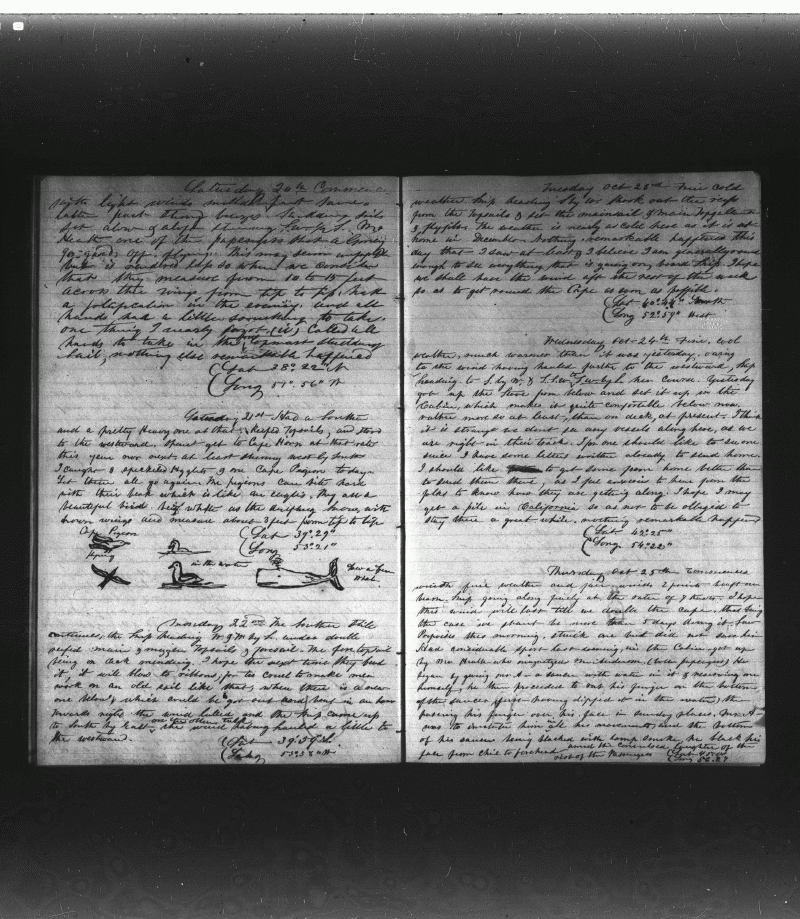 Saturday 20th Commences
with light winds middle part same
latter part strong breeze studding sails
set alow & aloft steering S.W. by S. Mr
Heath one of the passengers shot a
off, flying. This may seem
but is when we consider
that they measure from 10 to 12 feet
across the wings from tip to tip. Had
a jollification in the evening, and all
hands had a little something to take.
one thing I nearly forgot, called all
hands to take in the topmast studding
sail, nothing else remarkable happened
Lat 28° 22" N
Long 51° 56" W
Saturday 21st Had a
and a pretty Heavy one at that, reefed topsails, and stood
to the westward. shant get to Cape Horn at that rate
this year nor next, at least steering west by south
I caught 2 speckled & one Cape Pigeon today.
Let them all go again. The pigeons cant bite hard
with their beak which is like an They are a
beautiful bird being white as the drifting snow, with
brown wings and measure about 3 feet from tip to tip
Lat 39° 29"
Long 53° 21"
Cape Pigeon
flying
in the water
Whale
Monday 22nd The still
continues, the Ship heading W. by S. under double
reefed main & mizzen topsails & foresail. The fore topsail
being on deck mending. I hope the next time they bend
it, it will blow to ribbons, for its cruel to make men
work on an old sail like that when there is a new
one below, which could be got out and bent in an hour
towards night the wind lulled, and the Ship came up
on the other tack
to South by East, the wind having hauled a little to
the westward.
Lat 39° 59" S.
Long 53° 38" W
Tuesday Oct 23rd Fine Cold
weather. Ship heading S by W shook out the reefs
from the topsails & set the mainsail & main Topgallant
& flying jib. The weather is nearly as cold here as it is at
home in December. Nothing remarkable happened this
day that I saw at least & I believe I am generally round
enough to see everything that is going on, board ship. I hope
we shall have the wind aft, the rest of the week
so as to get round the Cape as soon as possible.
Lat 40° 44" South
Long 52° 59" West
Wednesday Oct 24th Fine, cool
weather, much warmer than it was yesterday, owing
to the wind having hauled further to the westward, Ship
heading to S. by W. & S.S.W., S.W. by S. her Course. Yesterday
got up the Stove from below and set it up in the
Cabin, which makes it quite comfortable below now.
rather more so at least, than on deck, at present. I think
it is strange we dont see any vessels along here, as we
are right in their track. I for one should like to see one
since I have some letters written already to send home.
I should like to get some from home better than
to send them there, as I feel anxious to hear from the
folks to know how they are getting along. I hope I may
get a pile in California so as not to be obliged to
stay there a great while, nothing remarkable happened
Lat 42° 25"
Long 54° 22"
Thursday Oct 25th Commences
with fine weather and fair winds 2 points abaft the
beam. Ship going along finely at the rate of 9 knots. I hope
this wind will last till we double the Cape. that being
the case we shant be more than 8 days doing it. Saw
Porpoises this morning. struck one but did not save him
Had considerable sport last evening, in the Cabin, got up
by Mr. Heath who magnetized Mr Anderson, (both passengers) He
began by giving Mr. A a saucer with water in it & reserving one
himself, he then proceeded to rub his finger on the bottom
of the saucer (first having dipped it in the water) then
passing his finger over his face in sundry places. Mr. A
was to imitate him in all his movements, and the bottom
of his saucer being blacked with lamp smoke, he blacked his
face from chin to forehead amid the convulsed laughter of the
rest of the Passengers